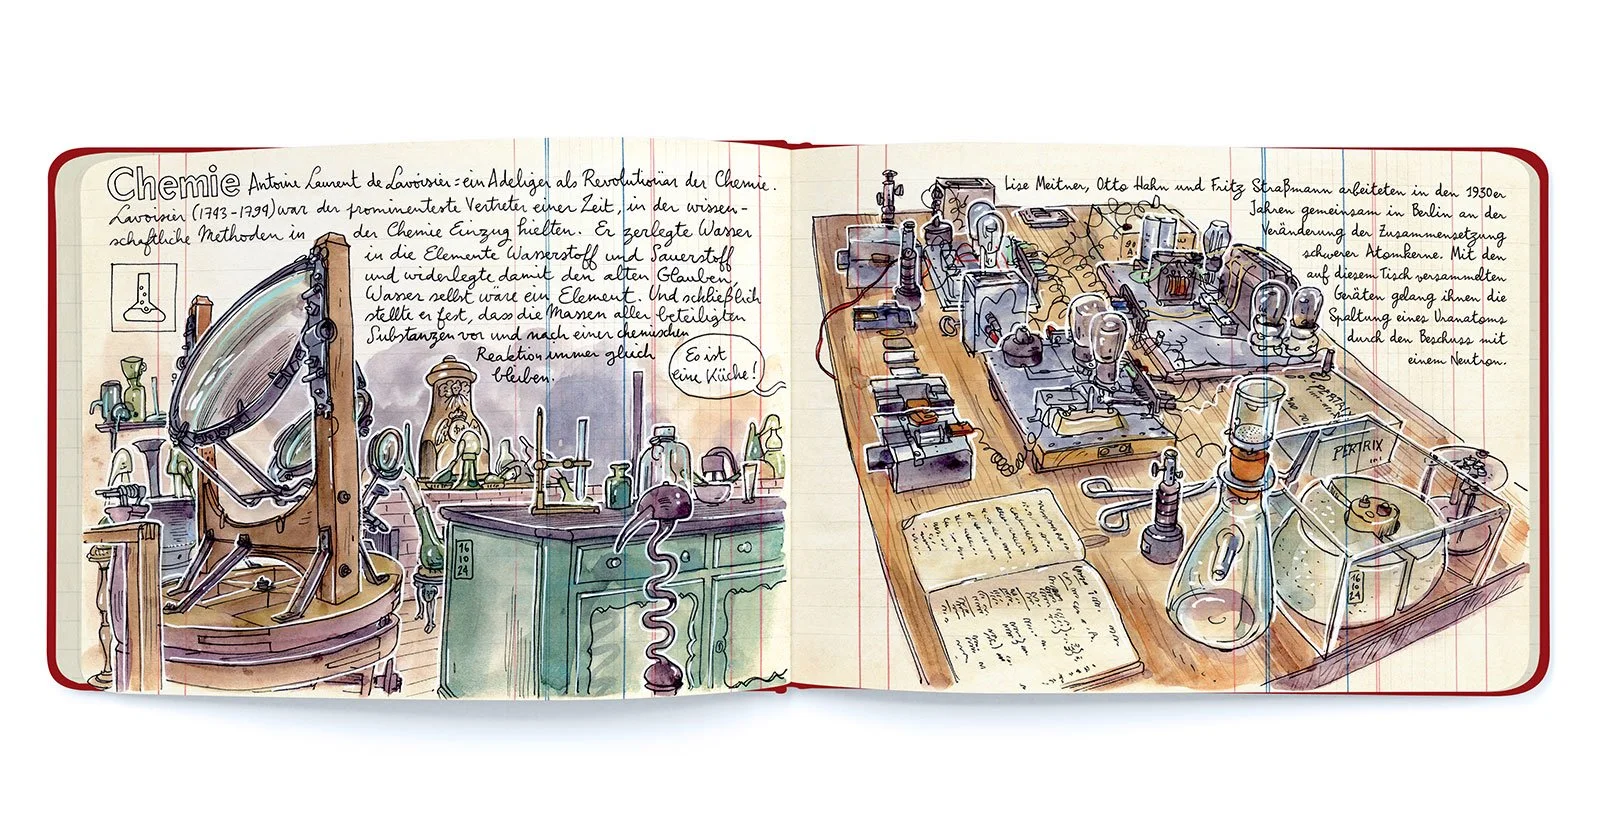 Chemie Antoine Laurent de Lavoisier = ein Adeliger als Revolutionär der Chemie.
Lavoisier (1743-1799) war der prominenteste Vertreter einer Zeit, in der wissen-
schaftliche Methoden in der Chemie Einzug hielten. Er zerlegte Wasser
in die Elemente Wasserstoff und Sauerstoff
und widerlegte damit den alten Glauben,
Wasser selbst wäre ein Element. Und schließlich
stellte er fest, dass die Massen aller beteiligten
Substanzen vor und nach einer chemischen
Reaktion immer gleich
bleiben.
Es ist
eine Küche!
16
10
24
Lise Meitner, Otto Hahn und Fritz Straßmann arbeiteten in den 1930er
Jahren gemeinsam in Berlin an der
Veränderung der Zusammensetzung
schwerer Atomkerne. Mit den
auf diesem Tisch versammelten
Geräten gelang ihnen die
Spaltung eines Uranatoms
durch den Beschuss mit
einem Neutron.
PERTRIX
16
10
24